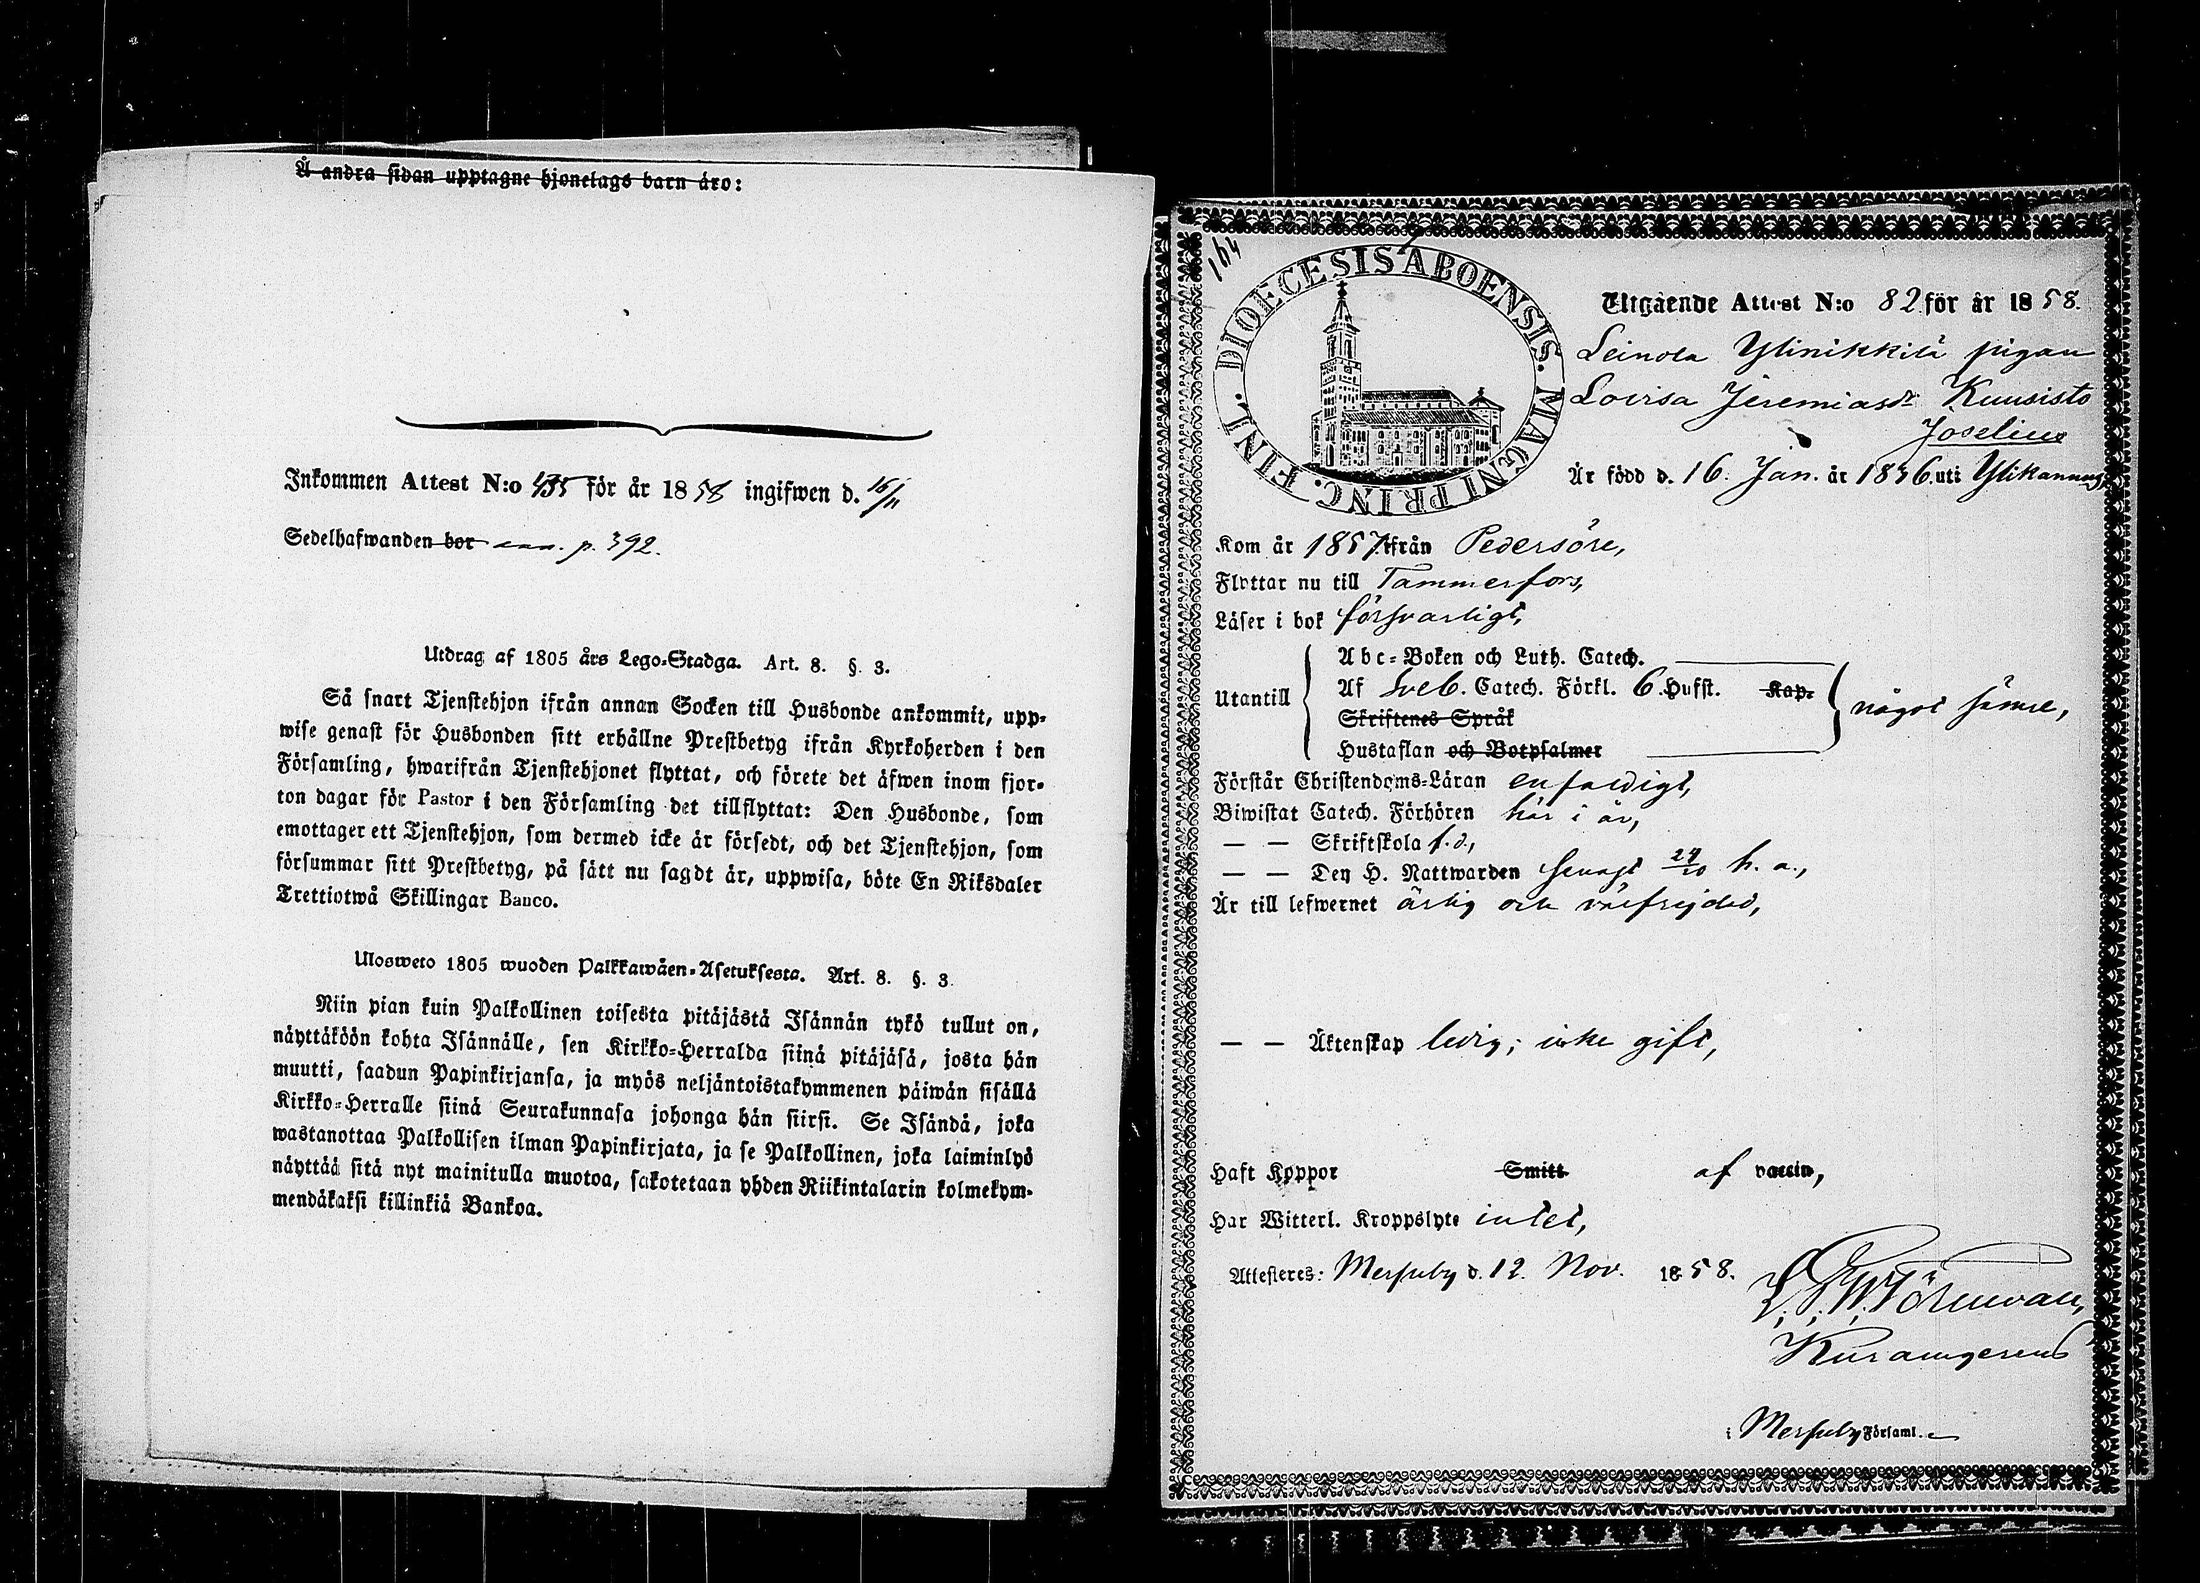 Å andra sidan upptagne hjonelags barn äro:
Inkommen Attest N:o 435 för år 1858 ingifwen d. 16/11
Sedelhafwanden bor ann. p. 392.
Utdrag af 1805 års Lego-Stadga. Art. 8. §. 3.
Så snart Tjenstehjon ifrån annan Socken till Husbonde ankommit, upp-
wise genast för Husbonden sitt erhållne Prestbetyg ifrån Kyrkoherden i den
Församling, hwarifrån Tjenstehjonet flyttat, och förete det äfwen inom fjor-
ton dagar för Pastor i den Församling det tillflyttat: Den Husbonde, som
emottager ett Tjenstehjon, som dermed icke är försedt, och det Tjenstehjon, som
försummar sitt Prestbetyg, på sätt nu sagdt är, uppwisa, böte En Riksdaler
Trettiotwå Skillingar Banco.
Ulosweto 1805 wuoden Palkkawäen-Asetuksesta. Art. 8. §. 3.
Niin pian kuin Palkollinen toisesta pitäjästä Isännän tykö tullut on,
näyttäköön kohta Isännälle, sen Kirkko-Herralda siinä pitäjäsä, josta hän
muutti, saadun Papinkirjansa, ja myös neljäntoistakymmenen päiwän sisällä
Kirkko-Herralle siinä Seurakunnasa johonga hän siirsi. Se Isändä, joka
wastanottaa Palkollisen ilman Papinkirjata, ja se Palkollinen, joka laiminlyö
näyttää sitä nyt mainitulla muotoa, sakotetaan yhden Riikintalarin kolmekym-
mendäkaksi killinkiä Bankoa.
164
DIOECESIS ÅBOENSIS. MAGNI PRINC. FINL.
Utgående Attest N:o 82 för år 1858.
Leinola Ylinikkilä pigan
Lovisa Jeremiasdr Kuusisto
Joselius
Är född d. 16. Jan. år 1836 uti Ylikannus,
Kom år 1857 ifrån Pedersöre,
Flyttar nu till Tammerfors,
Läser i bok försvarligt,
Utantill
Abc-Boken och Luth. Catech.
Af Sveb. Catech. Förkl. 6 Hufst. Kap.
Skriftenes Språk
Hustaflan och Botpsalmer
något sämre,
Förstår Christendoms-Läran enfaldigt,
Biwistat Catech. Förhören här i år,
— — Skriftskola f. d.,
— — Den H. Nattwarden senast 24/10 h. a.,
Är till lefwernet ärlig och välfrejdad,
— — Äktenskap ledig; icke gift,
Haft Koppor Smitt af vaccin,
Har Witterl. Kroppslyte intet,
Attesteres: Messuby d. 12. Nov. 1858.
i Messuby Församl.